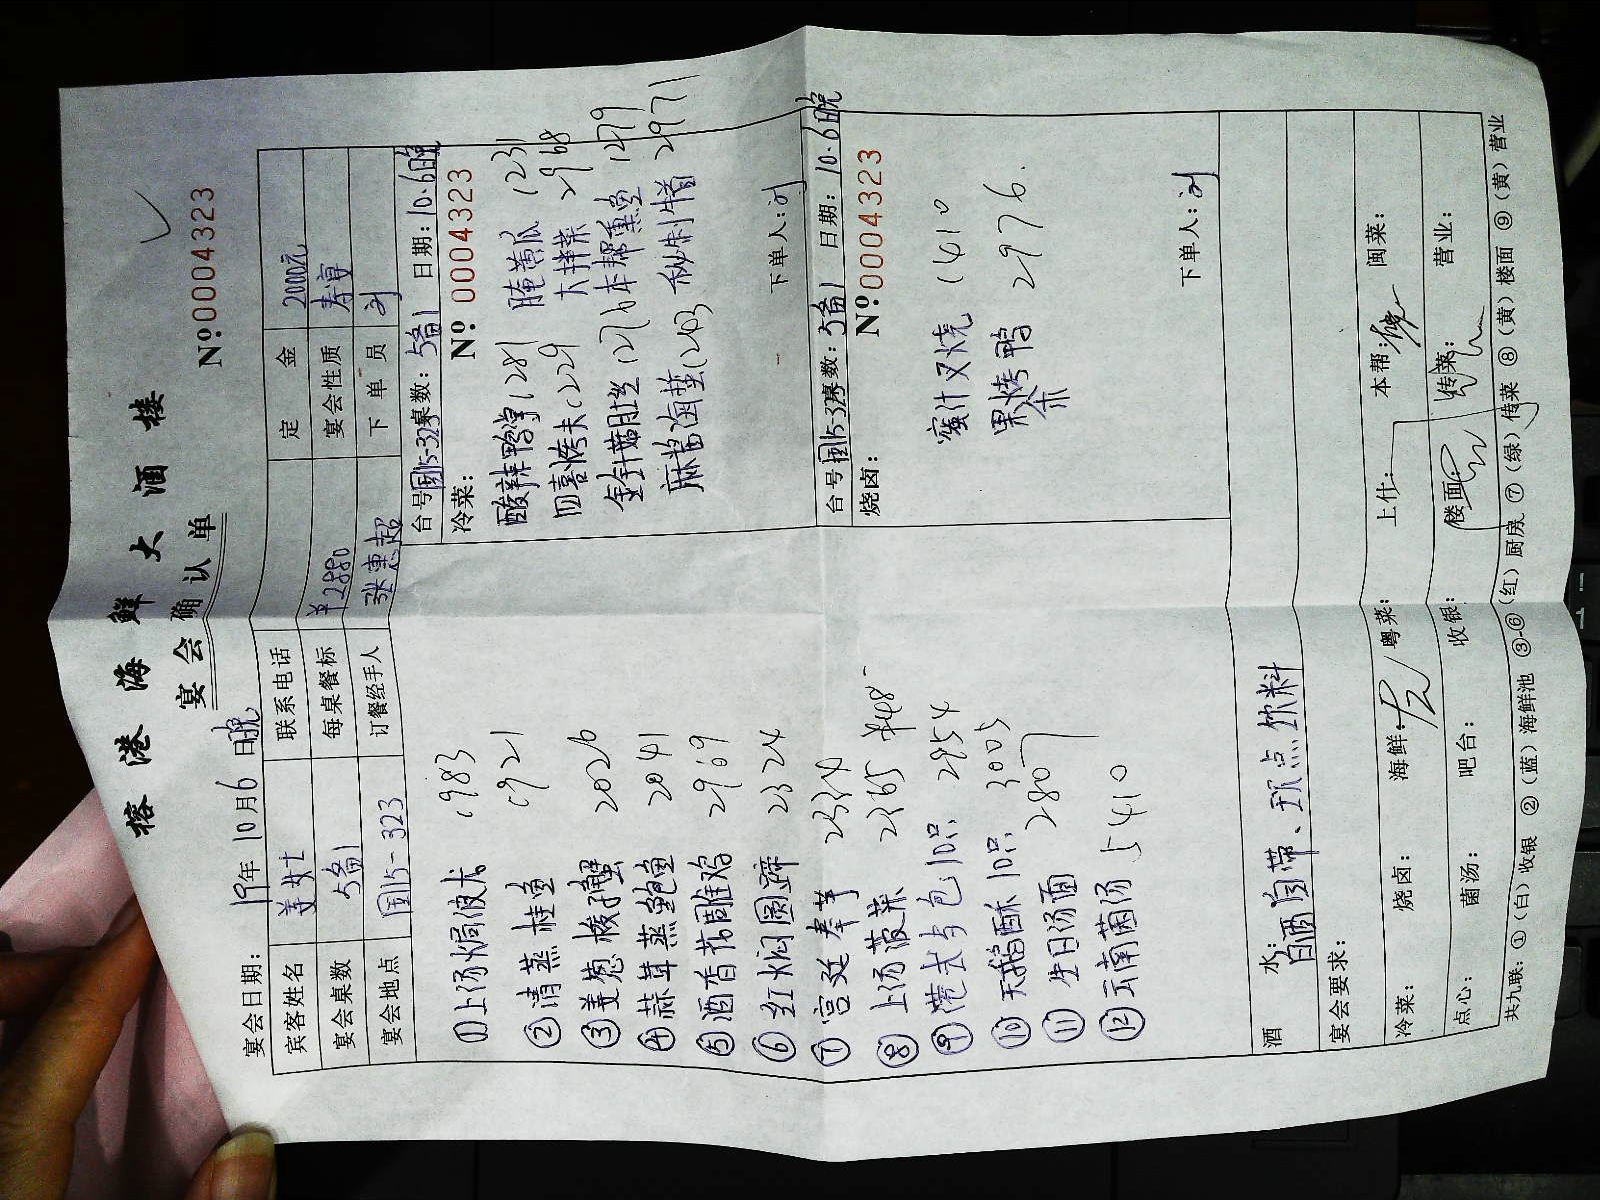 榕港海鲜大酒楼
宴会确认单
№0004323
宴会日期: 19年10月6日晚
宾客姓名 姜女士 联系电话 定金 2000元
宴会桌数 5备1 每桌餐标 ¥2880 宴会性质 寿宴
宴会地点 国15-323 订餐经手人 张惠超 下单员 刘
①上汤焗 1983
②清蒸桂鱼 1921
③姜葱梭子蟹 2026
④蒜茸蒸鲍鱼 2041
⑤酒香花雕鸡 2969
⑥红焖圆蹄 2324
⑦宫廷
⑧上汤菠菜 2165
⑨港式 包10只 2954
⑩天鹅酥10只 3005
⑪生日汤面 2807
⑫云南菌汤 5410
台号国15-323 桌数: 5备1 日期: 10.6日晚
冷菜: №0004323
酸辣鸭掌 1281 腌黄瓜 1231
四喜烤夫 1229 大拌菜 2968
金针菇肚丝 1276 本帮熏鱼 1479
麻酱 1243 秘制牛 2971
下单人: 刘
台号国15-323 桌数: 5备1 日期: 10.6日晚
烧卤: №0004323
蜜汁叉烧 1410
果木烤鸭 2976.
下单人: 刘
酒水: 白酒自带、现点饮料
宴会要求:
冷菜: 烧卤: 海鲜: 粤菜: 上什: 本帮: 闽菜:
点心: 菌汤: 吧台: 收银: 楼面: 传菜: 营业:
共九联: ①(白)收银 ②(蓝)海鲜池 ③-⑥(红)厨房 ⑦(绿)传菜 ⑧(黄)楼面 ⑨(黄)营业